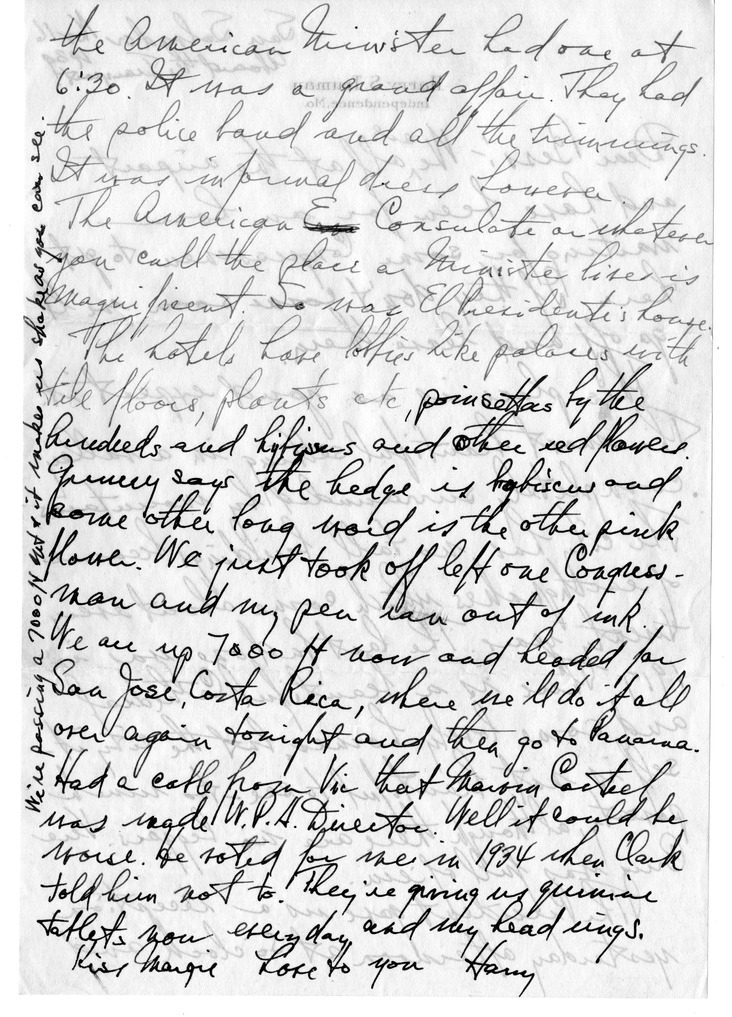 the American Minister had one at
6:30. It was a grand affair. They had
the police band and all the trimmings.
It was informal dress however.
The American Consulate or whatever
you call the place a Minister lives is
magnificent. So was El Presidente's house.
The hotels have lobbies like palaces with
tile floors, plants etc, poinsettas by the
hundreds and hybiscus and other red flowers.
Gunney says the hedge is hybiscus and
some other long word is the other pink
flower. We just took off left one Congress-
man and my pen ran out of ink.
We are up 7000 ft now and headed for
San Jose, Costa Rica, where we'll do it all
over again tonight and then go to Panama.
Had a cable from Vic that Marvin Casteel
was made W.P.A. Director. Well it could be
worse. He voted for me in 1934 when Clark
told him not to. They're giving us quinine
tablets now every day and my head rings.
Kiss Margie Love to you Harry
We're passing a 7000 ft mt & it makes us shake as you can see.